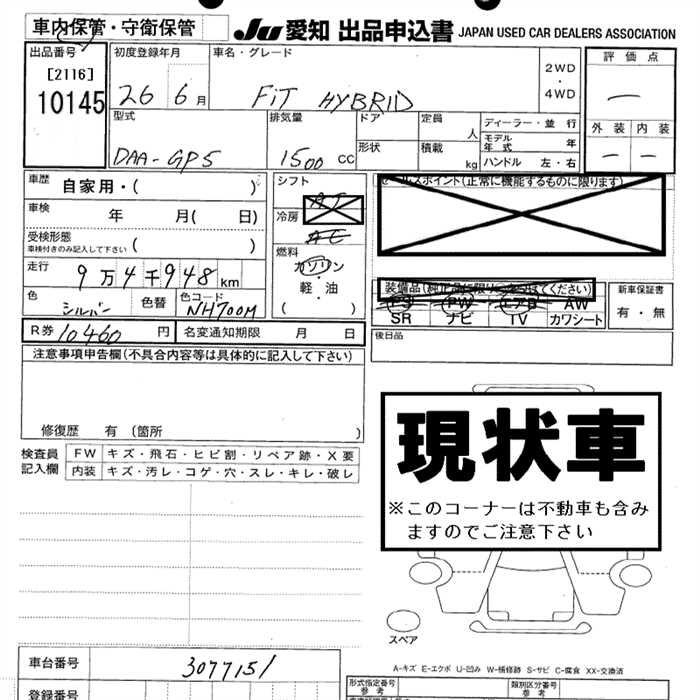 車内保管・守衛保管 JU 愛知 出品申込書 JAPAN USED CAR DEALERS ASSOCIATION
出品番号 初度登録年月 車名・グレード 2WD ・ 4WD 評価点
[2116]
10145 26 6月 FIT HYBRID 一
型式 排気量 ドア 定員 人 ディーラー・並行 外装 内装
モデル年式 年
DAA-GP5 1500 CC 形状 積載 kg ハンドル 左・右 一 一
車歴 自家用・( ) シフト AT セールスポイント(正常に機能するものに限ります)
車検 年 月( 日) 冷房 AC
受検形態
車検付きのみ記入して下さい ( ) 燃料
走行 9万4千948km ガソリン・軽・油
( )
色 シルバー 色替 色コード NH700M 装備品(純正品に限り○をつけてください) 新車保証書
PS PW エアB AW 有・無
SR ナビ TV カワシート
R券 10460円 名変通知期限 月 日 後日品
注意事項申告欄(不具合内容等は具体的に記入して下さい)
修復歴 有 (箇所 )
現状車
※このコーナーは不動車も含み
ますのでご注意下さい
検査員記入欄 FW キズ・飛石・ヒビ割・リペア跡・X要
内装 キズ・汚レ・コゲ・穴・スレ・キレ・破レ
スペア
A-キズ E-エクボ U-凹み W-補修跡 S-サビ C-腐食 XX-交換済
車台番号 3077151
形式指定番号 参考 類別区分番号 参考
登録番号